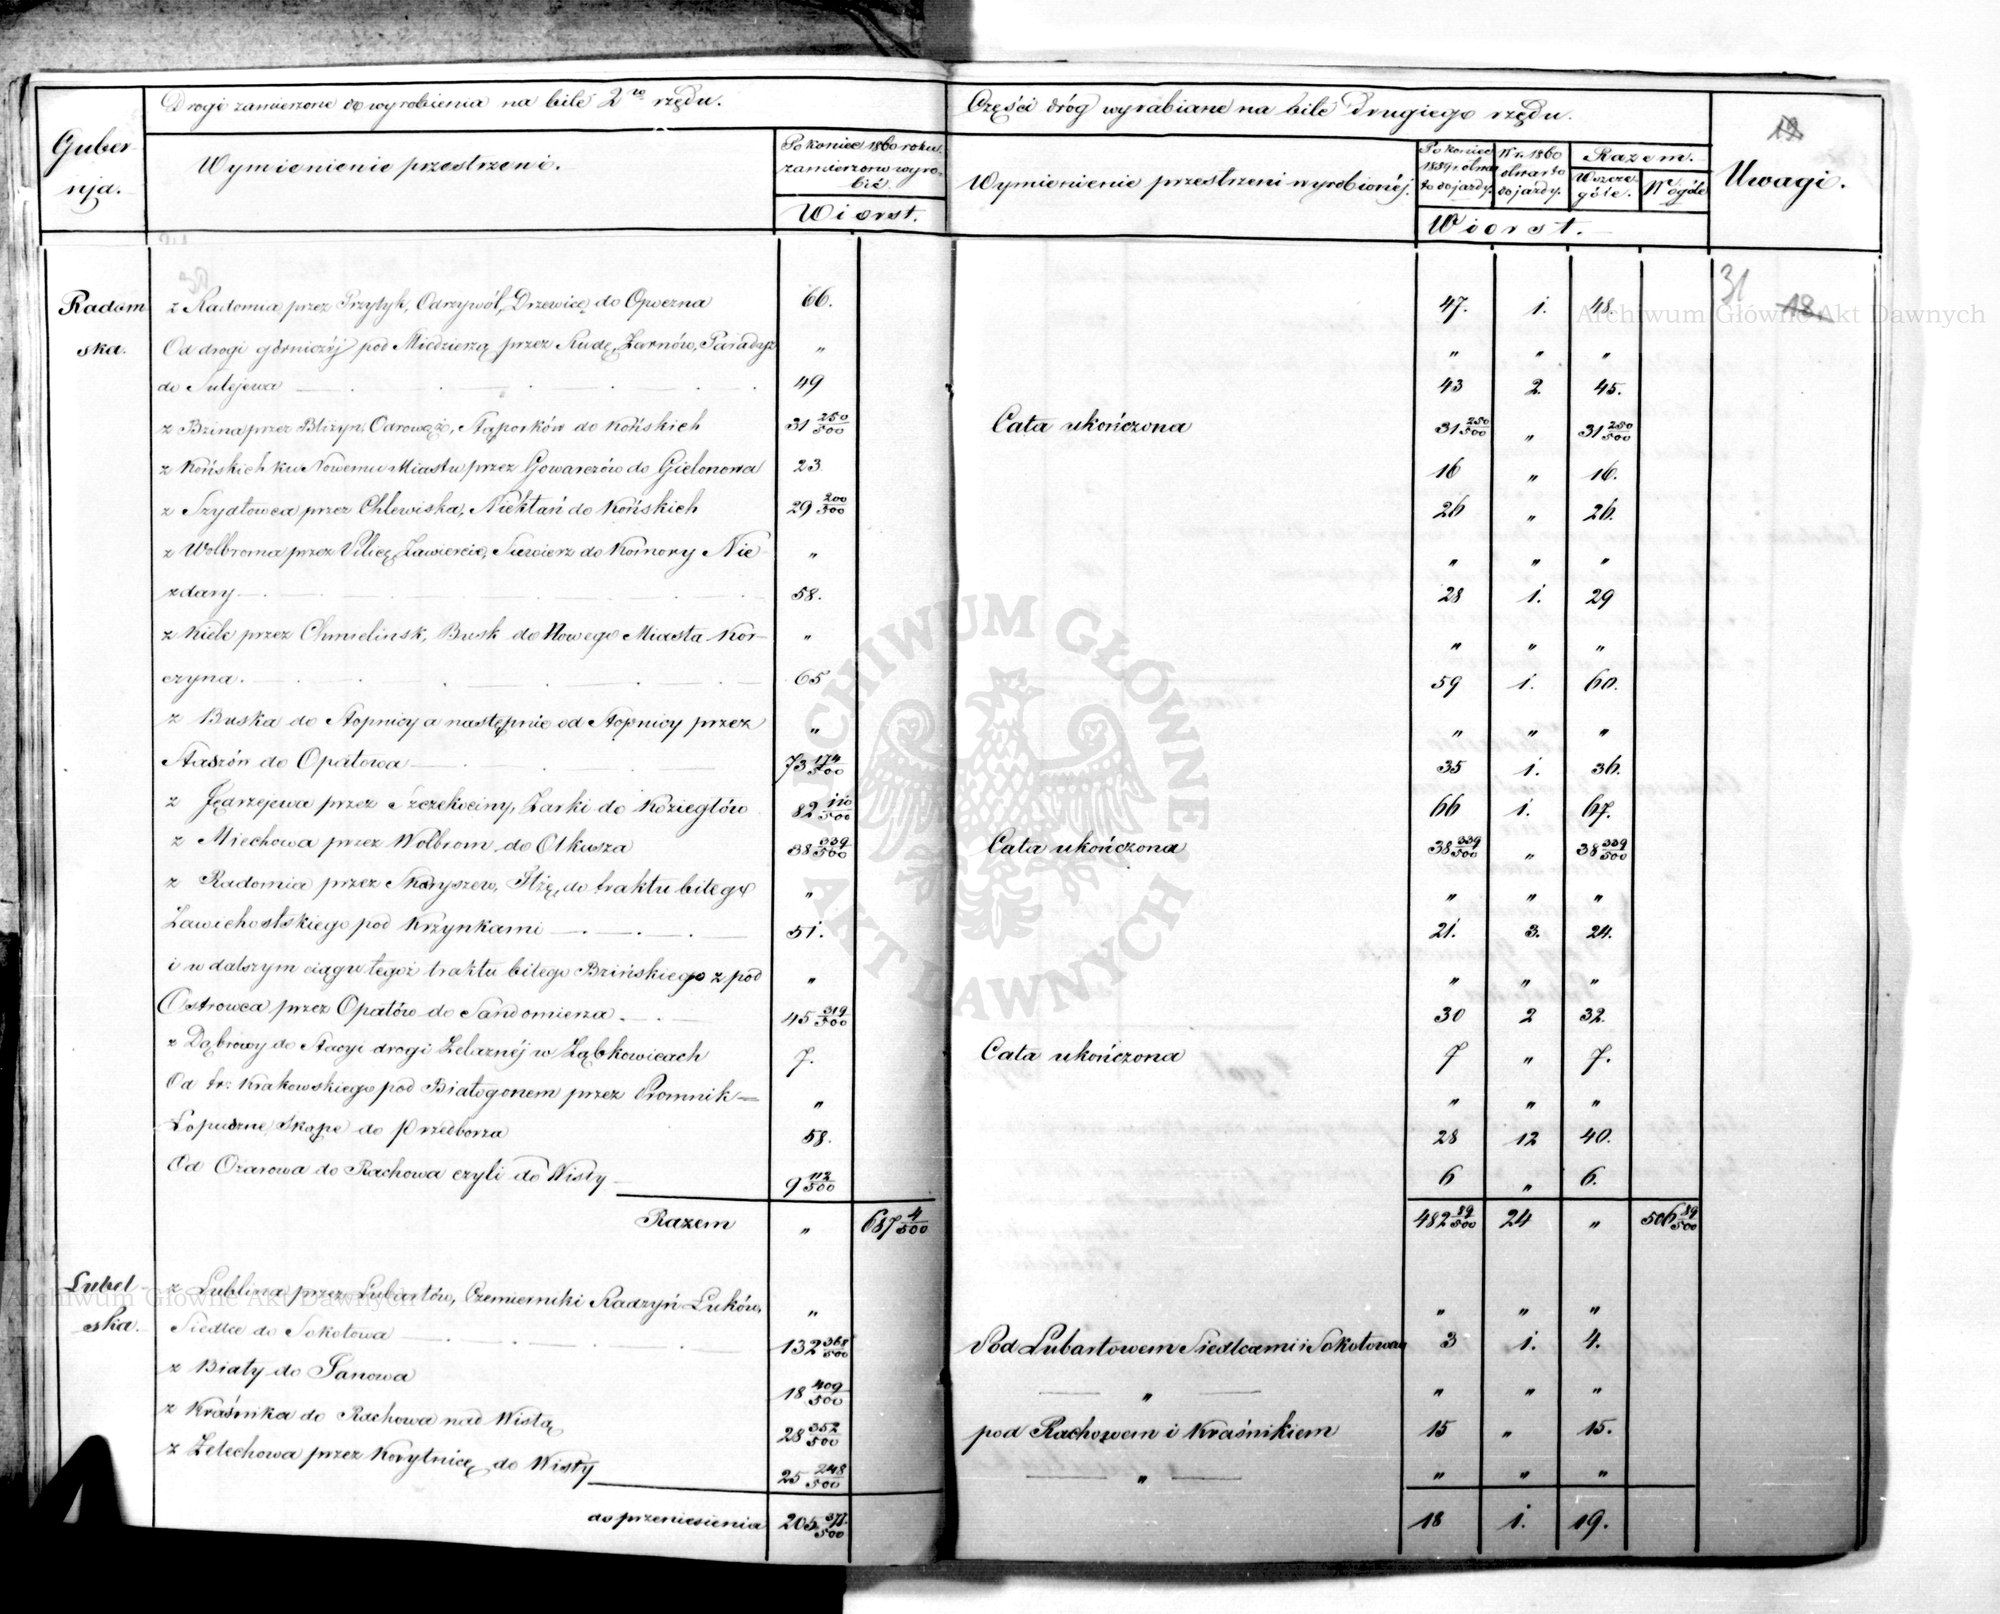 Drogi zamierzone do wyrobienia na bité 2go rzędu.
Części dróg wyrabiane na bité Drugiego rzędu.
Guber-
nja.
Wymienienie przestrzeni.
Po koniec 1860 roku
zamierzono wyro-
bić.
Wiorst.
Wymienienie przestrzeni wyrobionéj.
Po koniec
1859 r. otwar
to dojazdy.
W r. 1860
otwarto
dojazdy.
Razem.
Wszcze
góle.
W ogóle
Wiorst.
Uwagi.
19
31
18
Radom
ska.
z Radomia przez Przytyk, Odrzywół, Drzewicę do Opoczna 66. 47. 1. 48.
Od drogi górniczéj pod Miedzierzą przez Rudę, Żarnów, Paradyż „ „ „ „
do Sulejowa 49 43 2. 45.
z Bzina przez Bliżyn, Odrowąż, Stąporków do Końskich 31 250/500 Cała ukończona 31 250/500 „ 31 250/500
z Końskich ku Nowemu Miastu przez Gowarczów do Gielonowa 23. 16 „ 16.
z Szydłowca przez Chlewiska, Niekłań do Końskich 29 200/500 26 „ 26.
z Wolbroma przez Pilicę, Zawiercie, Siewierz do Komory Nie- „ „ „ „
zdary 58. 28 1. 29
z Kielc przez Chmielnik, Busk do Nowego Miasta Kor- „ „ „ „
czyna. 65 59 1. 60.
z Buska do Stopnicy a następnie od Stopnicy przez „ „ „ „
Staszów do Opatowa 73 174/500 35 1. 36.
z Jędrzejewa przez Szczekociny, Żarki do Koziegłów 82 110/500 66 1. 67.
z Miechowa przez Wolbrom do Olkusza 38 339/500 Cała ukończona 38 339/500 „ 38 339/500
z Radomia przez Skaryszew, Iłżę, do traktu bitego „ „ „ „
Zawichostskiego pod Krzynkami 51. 21. 3. 24.
i w dalszym ciągu tegoż traktu bitego Bzińskiego z pod „ „ „ „
Ostrowca przez Opatów do Sandomierza 45 319/500 30 2 32.
z Dąbrowy do Stacyi drogi Żelaznéj w Ząbkowicach 7. Cała ukończona 7 „ 7.
Od tr: Krakowskiego pod Białogonem przez Promnik „ „ „ „
Łopuszne, Skąpe do Przedborza 58. 28 12 40.
Od Ożarowa do Rachowa czyli do Wisły 9 112/500 6 „ 6.
Razem „ 687 4/500 482 89/500 24 „ 506 89/500
Lubel-
ska.
z Lublina przez Lubartów, Czemierniki Radzyń Łuków, „ „ „ „
Siedlce do Sokołowa 132 368/500 Pod Lubartowem Siedlcami i Sokołowem 3 1. 4.
z Biały do Janowa 18 409/500 „ „ „ „
z Kraśnika do Rachowa nad Wisłą 28 352/500 pod Rachowem i Kraśnikiem 15 „ 15.
z Żelechowa przez Korytnicę do Wisły 25 248/500 „ „ „ „
do przeniesienia 205 377/500 18 1. 19.
Archiwum Główne Akt Dawnych
Archiwum Główne Akt Dawnych
ARCHIWUM GŁÓWNE AKT DAWNYCH